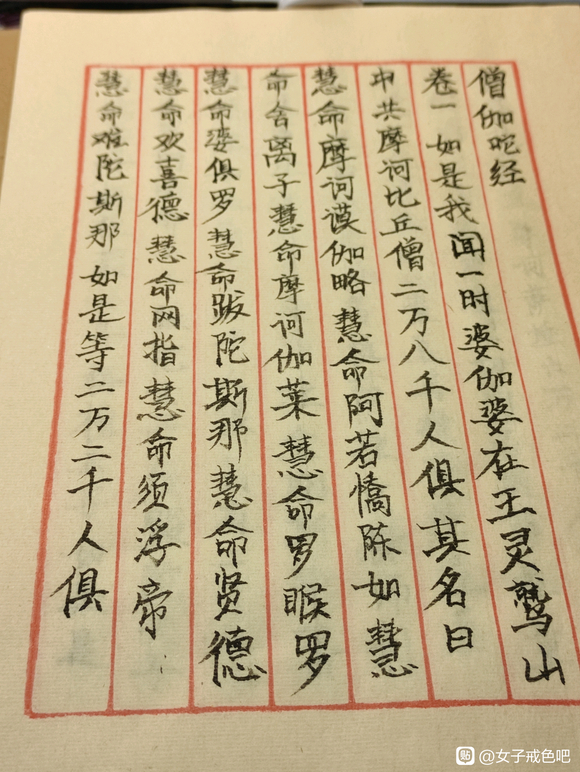 僧伽吒经
卷一如是我闻一时婆伽婆在王灵鹫山
中共摩诃比丘僧二万八千人俱其名曰
慧命摩诃谟伽略慧命阿若憍陈如慧
命舍离子慧命摩诃伽葉慧命罗睺罗
慧命婆俱罗慧命跋陀斯那慧命贤德
慧命欢喜德慧命网指慧命须浮帝
慧命难陀斯那如是等二万二千人俱
贴 @女子戒色吧